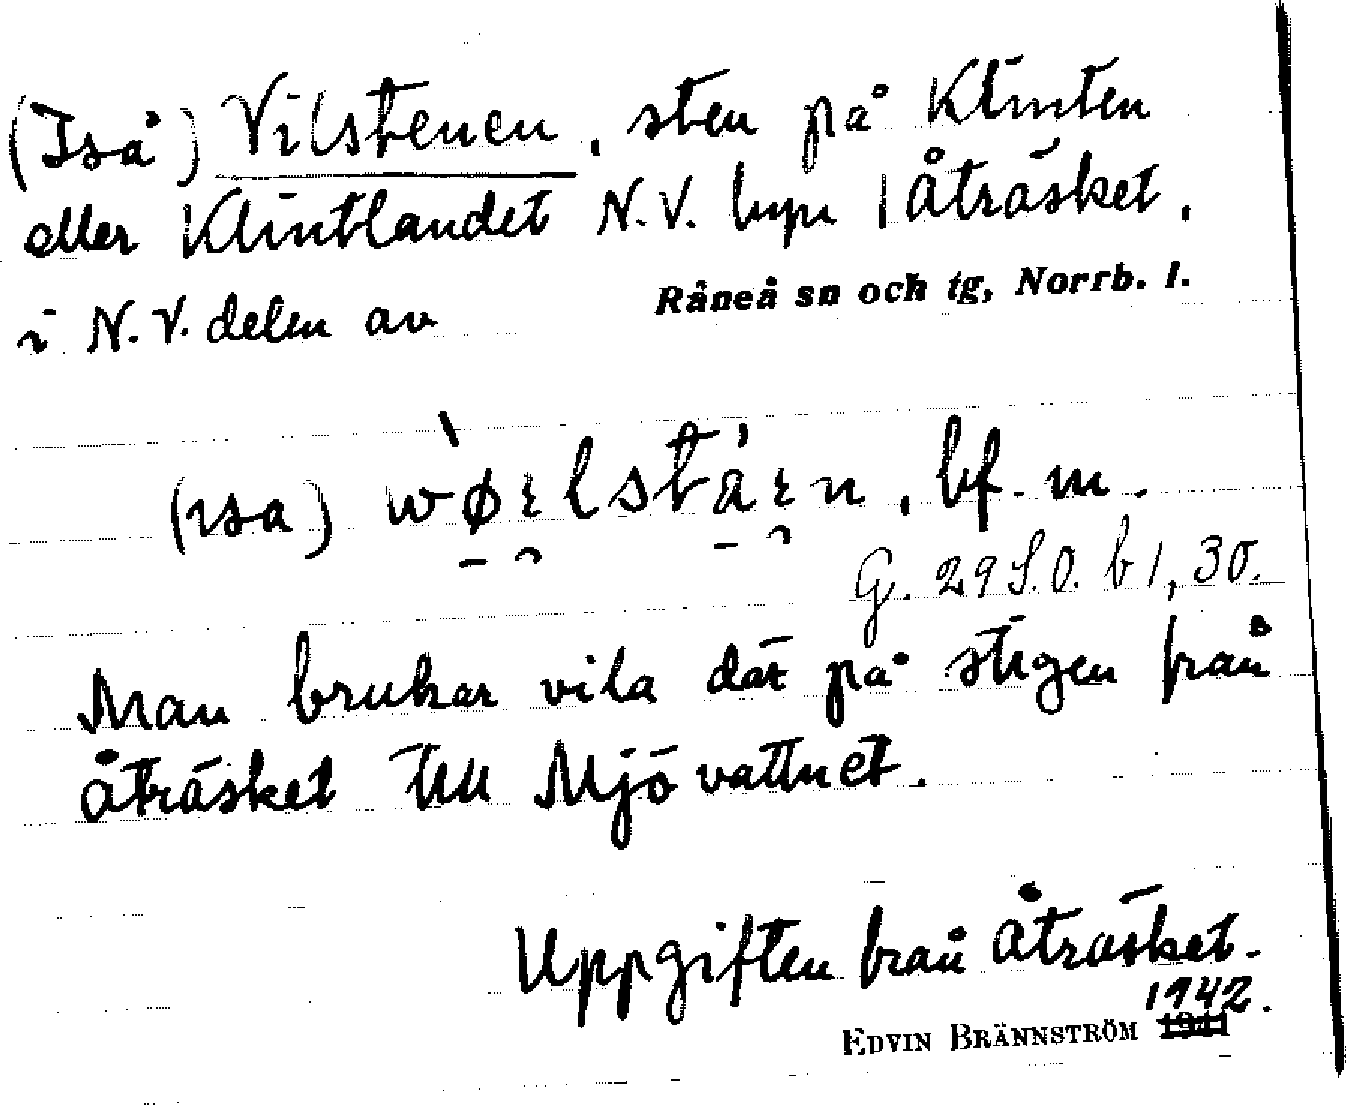 (Iså) Vilstenen, sten på Klinten
eller Klintlandet N.V. byn Åträsket,
i N.V. delen av Råneå sn och tg, Norrb. l.
bf. m.
G. 29 S.O. b 1, 30.
Man brukar vila där på stigen från
Åträsket till Mjövattnet.
Uppgiften från Åträsket.
1942.
EDVIN BRÄNNSTRÖM 1941